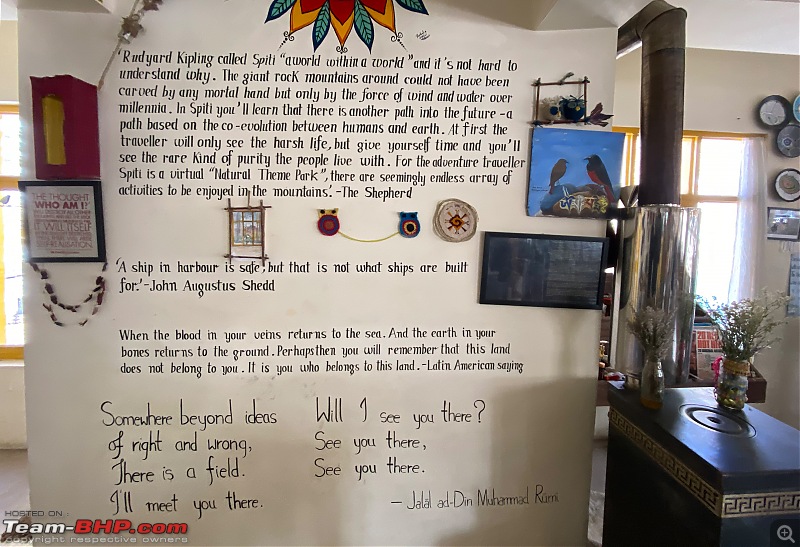 'Rudyard Kipling called Spiti "a world within a world" and it's not hard to
understand why. The giant rock mountains around could not have been
carved by any mortal hand but only by the force of wind and water over
millennia. In Spiti you'll learn that there is another path into the future - a
path based on the co-evolution between humans and earth. At first the
traveller will only see the harsh life, but give yourself time and you'll
see the rare kind of purity the people live with. For the adventure traveller
Spiti is a virtual "Natural Theme Park", there are seemingly endless array of
activities to be enjoyed in the mountains.' - The Shepherd
THE THOUGHT
WHO AM I?
IT WILL ITSELF
'A ship in harbour is safe, but that is not what ships are built
for.' - John Augustus Shedd
When the blood in your veins returns to the sea. And the earth in your
bones returns to the ground. Perhapsthen you will remember that this land
does not belong to you. It is you who belongs to this land. - Latin American saying
Somewhere beyond ideas
of right and wrong,
There is a field.
I'll meet you there.
Will I see you there?
See you there,
See you there.
- Jalāl ad-Din Muhammad Rūmī
HOSTED ON :
Team-BHP.com
copyright respective owners